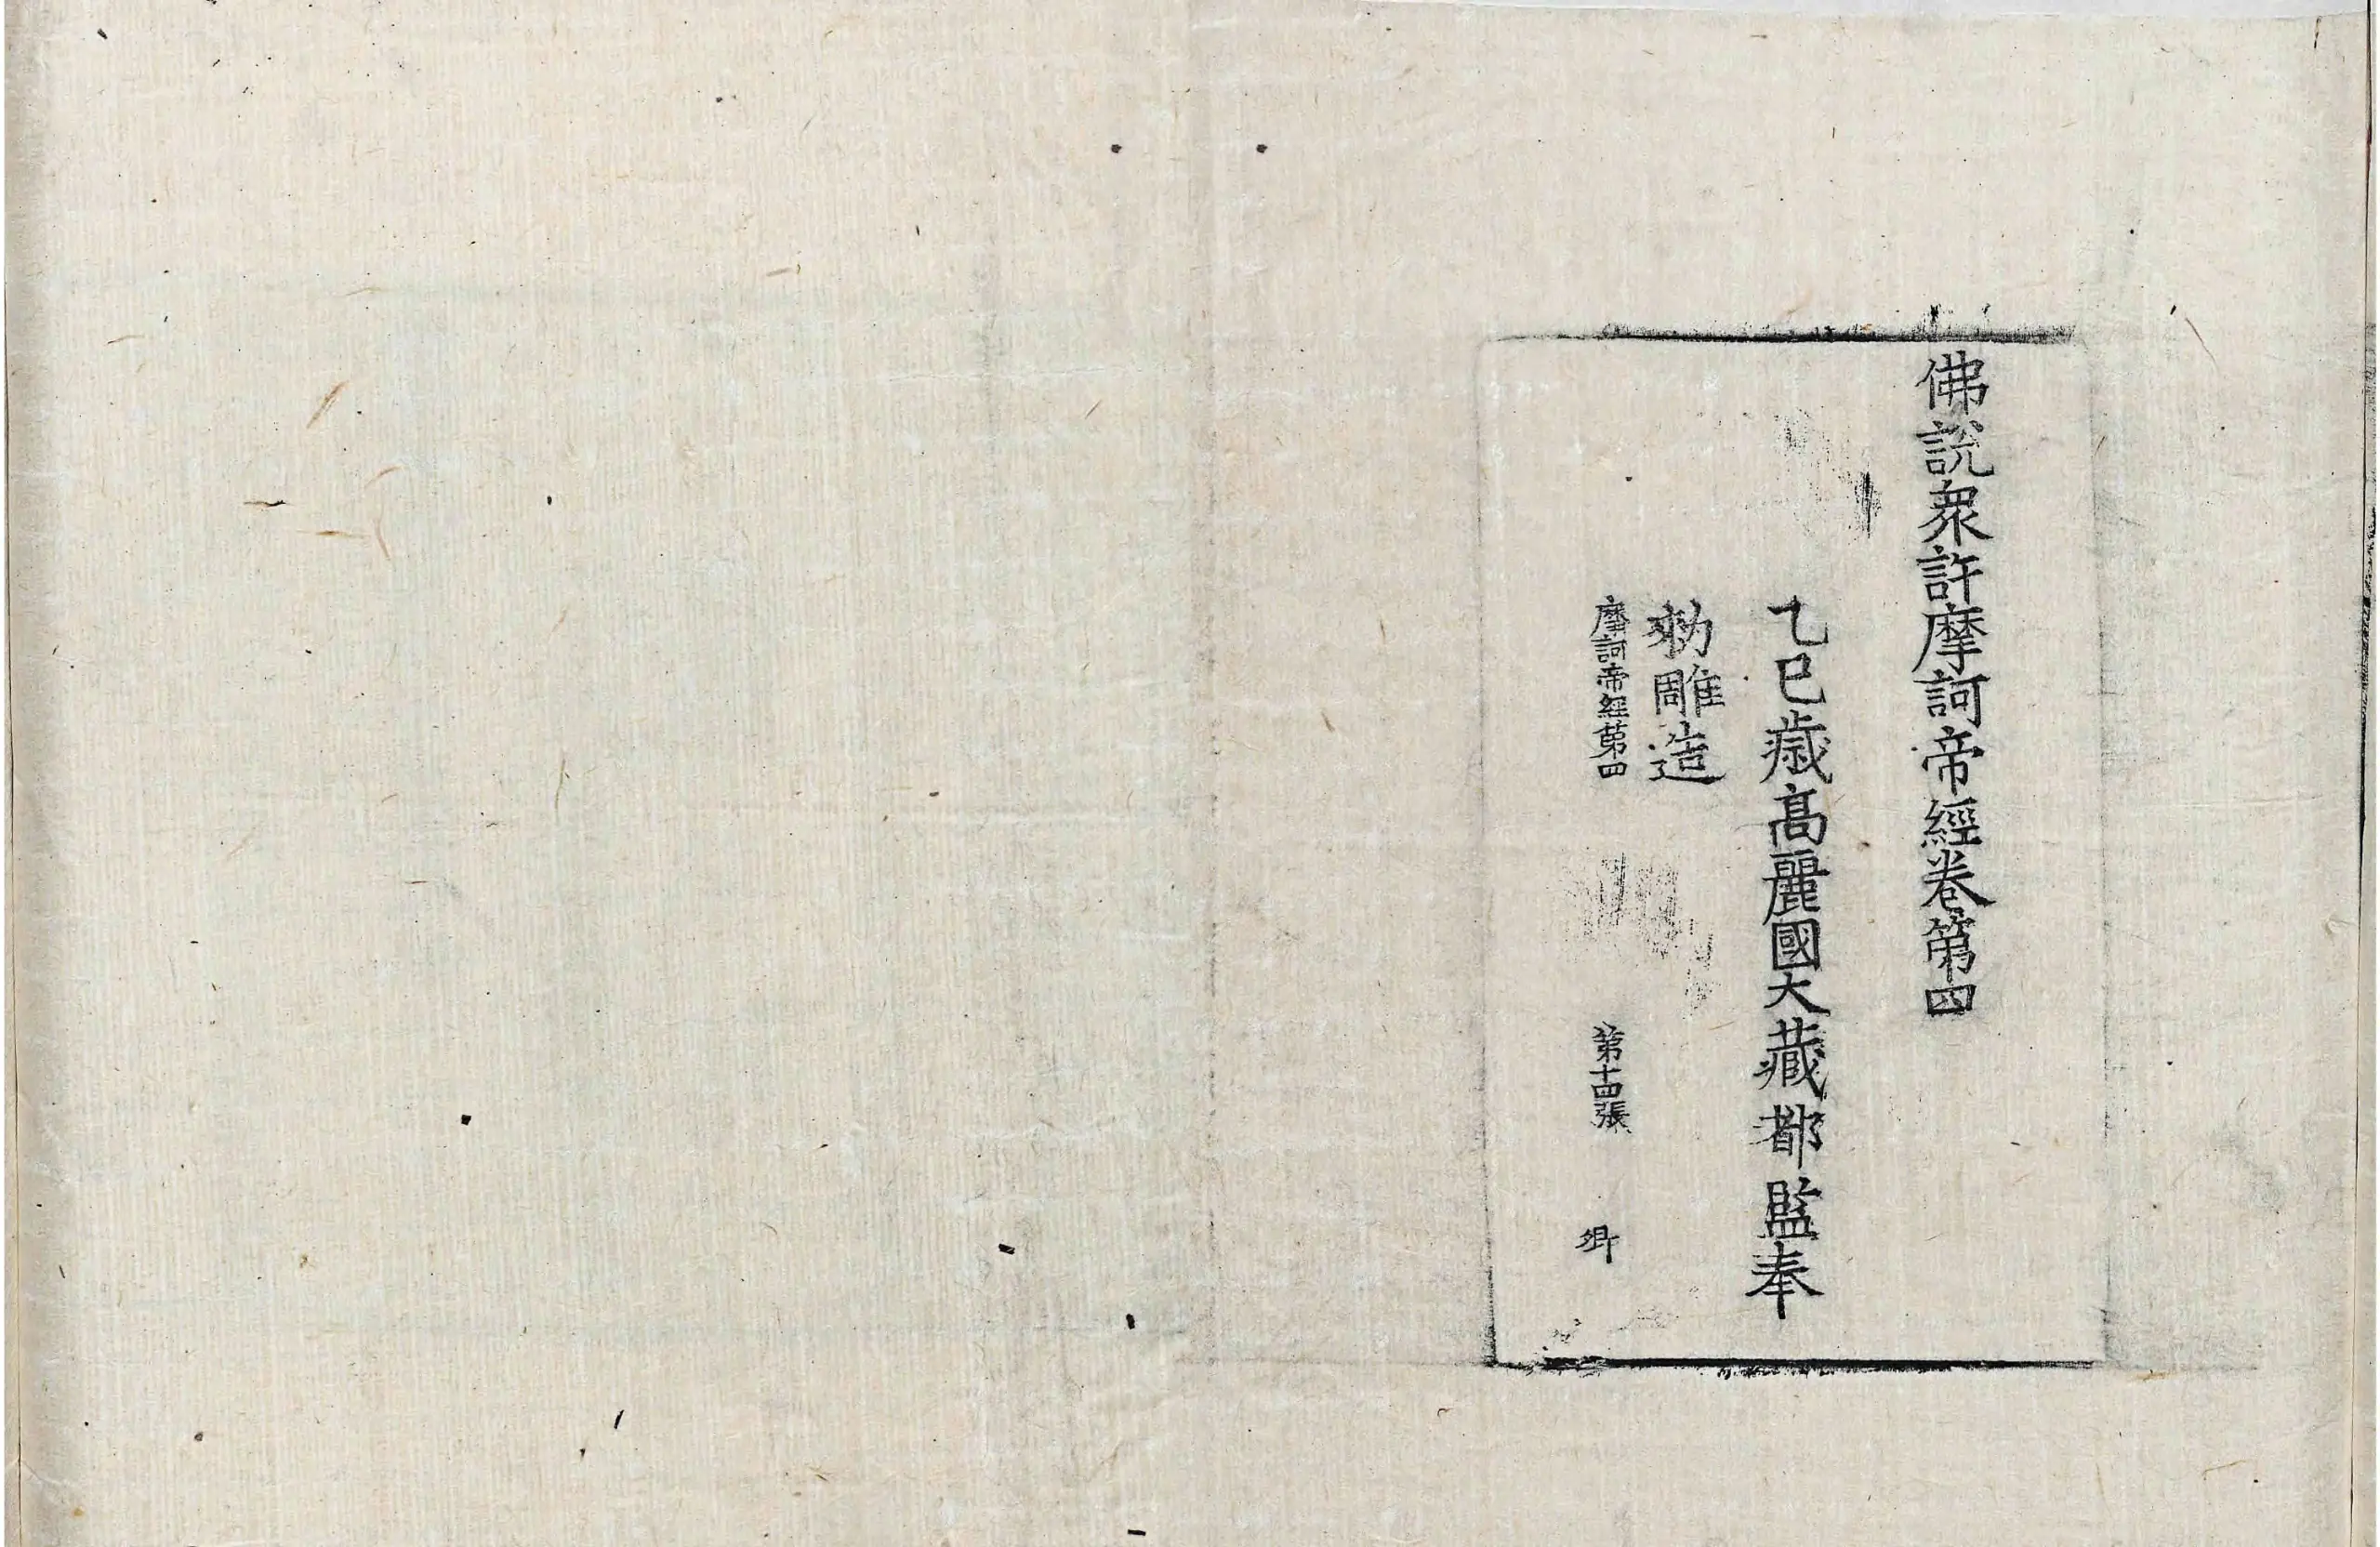 佛說衆許摩訶帝經卷第四
乙巳歲高麗國大藏都監奉
勑雕造
摩訶帝經第四 第十四張 卿